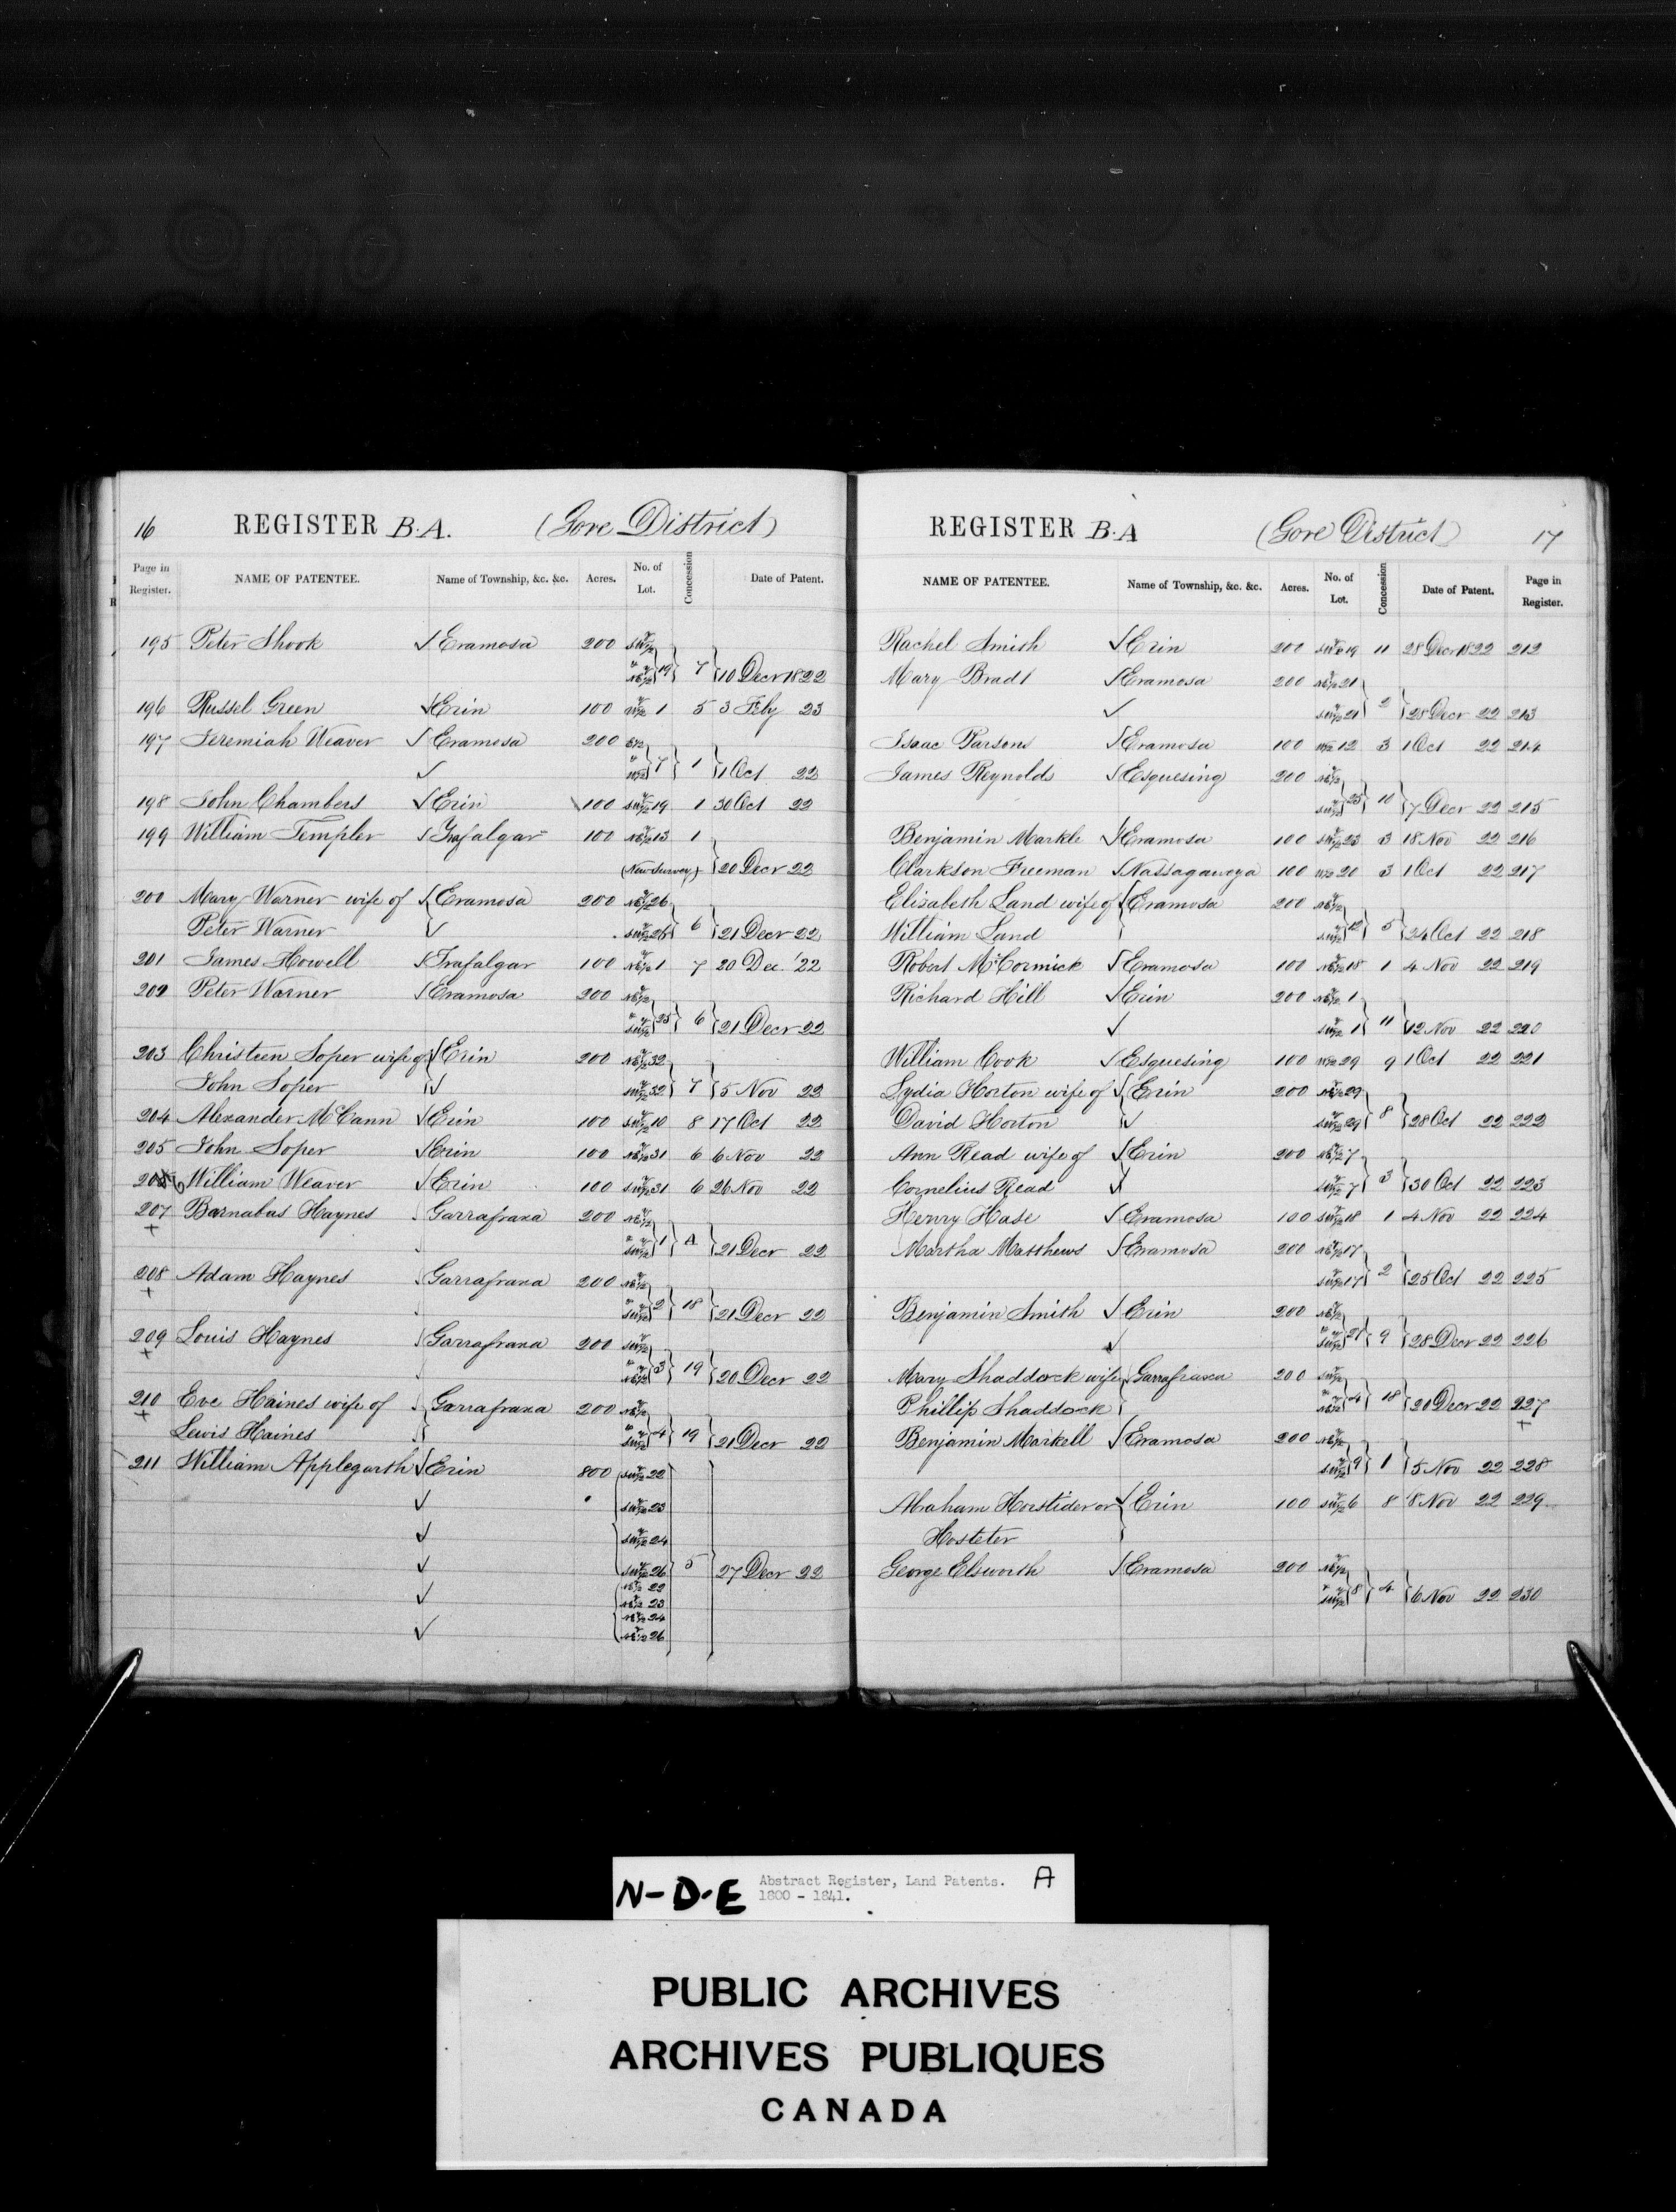 16 REGISTER B.A. (Gore District)
Page in Register. NAME OF PATENTEE. Name of Township, &c. &c. Acres. No. of Lot. Concession Date of Patent.
195 Peter Shook √ Eramosa 200 SW½
" NE½ } 19 } 7 } 10 Decr 1822
196 Russel Green √ Erin 100 W½ 1 5 3 Feby 23
197 Jeremiah Weaver √ Eramosa 200 E½
√ " W½ } 7 } 1 } 1 Oct 22
198 John Chambers √ Erin 100 SW½ 19 1 30 Oct 22
199 William Templer √ Trafalgar 100 NE½ 13 1
(New Survey) } 20 Decr 22
200 Mary Warner wife of √ Eramosa 200 NE½ 26
Peter Warner √ SW½ 26 } 6 } 21 Decr 22
201 James Howell √ Trafalgar 100 NE½ 1 7 20 Dec. '22
202 Peter Warner √ Eramosa 200 NE½
" SW½ } 25 } 6 } 21 Decr 22
203 Christeen Soper wife of √ Erin 200 NE½ 32
John Soper √ SW½ 32 } 7 } 5 Nov 22
204 Alexander McCann √ Erin 100 SW½ 10 8 17 Oct 22
205 John Soper √ Erin 100 NE½ 31 6 6 Nov 22
206 William Weaver √ Erin 100 SW½ 31 6 26 Nov 22
207 Barnabas Haynes √ Garrafraxa 200 NE½
+ " SW½ } 1 } A } 21 Decr 22
208 Adam Haynes √ Garrafraxa 200 NE½
+ " SW½ } 2 } 18 } 21 Decr 22
209 Louis Haynes √ Garrafraxa 200 SW½
+ " NE½ } 3 } 19 } 20 Decr 22
210 Eve Haines wife of √ Garrafraxa 200 NE½
+ Lewis Haines " SW½ } 4 } 19 } 21 Decr 22
211 William Applegarth √ Erin 800 SW½ 22
√ SW½ 23
√ SW½ 24
√ SW½ 26 } 5 } 27 Decr 22
NE½ 22
√ NE½ 23
NE½ 24
√ NE½ 26
REGISTER B.A (Gore District) 17
NAME OF PATENTEE. Name of Township, &c. &c. Acres. No. of Lot. Concession Date of Patent. Page in Register.
Rachel Smith √ Erin 200 19 11 28 Decr 1822 212
Mary Bradt √ Eramosa 200 NE½ 21
√ SW½ 21 } 2 } 28 Decr 22 213
Isaac Parsons √ Eramosa 100 W½ 12 3 1 Oct 22 214
James Reynolds √ Esquesing 200 NE½
SW½ } 25 } 10 } 7 Decr 22 215
Benjamin Markle √ Eramosa 100 SW½ 23 3 18 Nov 22 216
Clarkson Freeman √ Nassagaweya 100 W½ 20 3 1 Oct 22 217
Elizabeth Land wife of √ Eramosa 200 NE½
William Land SW½ } 12 } 5 } 24 Oct 22 218
Robert McCormick √ Eramosa 100 NE½ 18 1 4 Nov 22 219
Richard Hill √ Erin 200 NE½ 1
√ SW½ 1 } 11 } 12 Nov 22 220
William Cook √ Esquesing 100 W½ 29 9 1 Oct 22 221
Lydia Horton wife of √ Erin 200 NE½ 29
David Horton √ SW½ 29 } 8 } 28 Oct 22 222
Ann Read wife of √ Erin 200 NE½ 7
Cornelius Read √ SW½ 7 } 3 } 30 Oct 22 223
Henry Hase √ Eramosa 100 SW½ 18 1 4 Nov 22 224
Martha Matthews √ Eramosa 200 NE½ 17
SW½ 17 } 2 } 25 Oct 22 225
Benjamin Smith √ Erin 200 NE½
√ " SW½ } 27 } 9 } 28 Decr 22 226
Mary Shaddock wife of Garrafraxa 200 SW½
Phillip Shaddock " NE½ } 4 } 18 } 20 Decr 22 227
+
Benjamin Markell √ Eramosa 200 NE½
SW½ } 9 } 1 } 5 Nov 22 228
Abraham Horstider or √ Erin 100 SW½ 6 8 8 Nov 22 229
Hosteter
George Elsworth √ Eramosa 200 NE½
" SW½ } 8 } 4 } 6 Nov 22 230
N-D-E Abstract Register, Land Patents. A
1800 - 1841.
PUBLIC ARCHIVES
ARCHIVES PUBLIQUES
CANADA